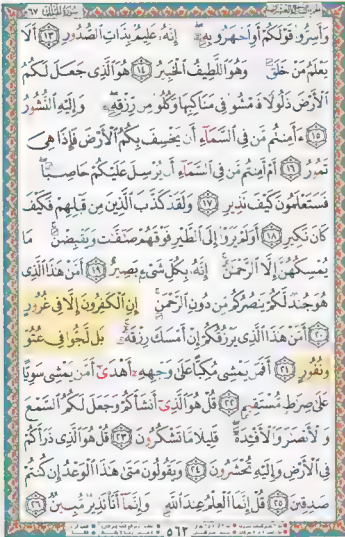 سورة الملك ٦٧
وَأَسِرُّوا۟ قَوْلَكُمْ أَوِ ٱجْهَرُوا۟ بِهِۦٓ إِنَّهُۥ عَلِيمٌۢ بِذَاتِ ٱلصُّدُورِ ١٣ أَلَا
يَعْلَمُ مَنْ خَلَقَ وَهُوَ ٱللَّطِيفُ ٱلْخَبِيرُ ١٤ هُوَ ٱلَّذِى جَعَلَ لَكُمُ
ٱلْأَرْضَ ذَلُولًا فَٱمْشُوا۟ فِى مَنَاكِبِهَا وَكُلُوا۟ مِن رِّزْقِهِۦ وَإِلَيْهِ ٱلنُّشُورُ
١٥ ءَأَمِنتُم مَّن فِى ٱلسَّمَآءِ أَن يَخْسِفَ بِكُمُ ٱلْأَرْضَ فَإِذَا هِىَ
تَمُورُ ١٦ أَمْ أَمِنتُم مَّن فِى ٱلسَّمَآءِ أَن يُرْسِلَ عَلَيْكُمْ حَاصِبًا
فَسَتَعْلَمُونَ كَيْفَ نَذِيرِ ١٧ وَلَقَدْ كَذَّبَ ٱلَّذِينَ مِن قَبْلِهِمْ فَكَيْفَ
كَانَ نَكِيرِ ١٨ أَوَلَمْ يَرَوْا۟ إِلَى ٱلطَّيْرِ فَوْقَهُمْ صَٰٓفَّٰتٍ وَيَقْبِضْنَ مَا
يُمْسِكُهُنَّ إِلَّا ٱلرَّحْمَٰنُ إِنَّهُۥ بِكُلِّ شَىْءٍۭ بَصِيرٌ ١٩ أَمَّنْ هَٰذَا ٱلَّذِى
هُوَ جُندٌ لَّكُمْ يَنصُرُكُم مِّن دُونِ ٱلرَّحْمَٰنِ إِنِ ٱلْكَٰفِرُونَ إِلَّا فِى غُرُورٍ
٢٠ أَمَّنْ هَٰذَا ٱلَّذِى يَرْزُقُكُمْ إِنْ أَمْسَكَ رِزْقَهُۥ بَل لَّجُّوا۟ فِى عُتُوٍّ
وَنُفُورٍ ٢١ أَفَمَن يَمْشِى مُكِبًّا عَلَىٰ وَجْهِهِۦٓ أَهْدَىٰٓ أَمَّن يَمْشِى سَوِيًّا
عَلَىٰ صِرَٰطٍ مُّسْتَقِيمٍ ٢٢ قُلْ هُوَ ٱلَّذِىٓ أَنشَأَكُمْ وَجَعَلَ لَكُمُ ٱلسَّمْعَ
وَٱلْأَبْصَٰرَ وَٱلْأَفْـِٔدَةَ قَلِيلًا مَّا تَشْكُرُونَ ٢٣ قُلْ هُوَ ٱلَّذِى ذَرَأَكُمْ
فِى ٱلْأَرْضِ وَإِلَيْهِ تُحْشَرُونَ ٢٤ وَيَقُولُونَ مَتَىٰ هَٰذَا ٱلْوَعْدُ إِن كُنتُمْ
صَٰدِقِينَ ٢٥ قُلْ إِنَّمَا ٱلْعِلْمُ عِندَ ٱللَّهِ وَإِنَّمَآ أَنَا۠ نَذِيرٌ مُّبِينٌ ٢٦
٥٦٣